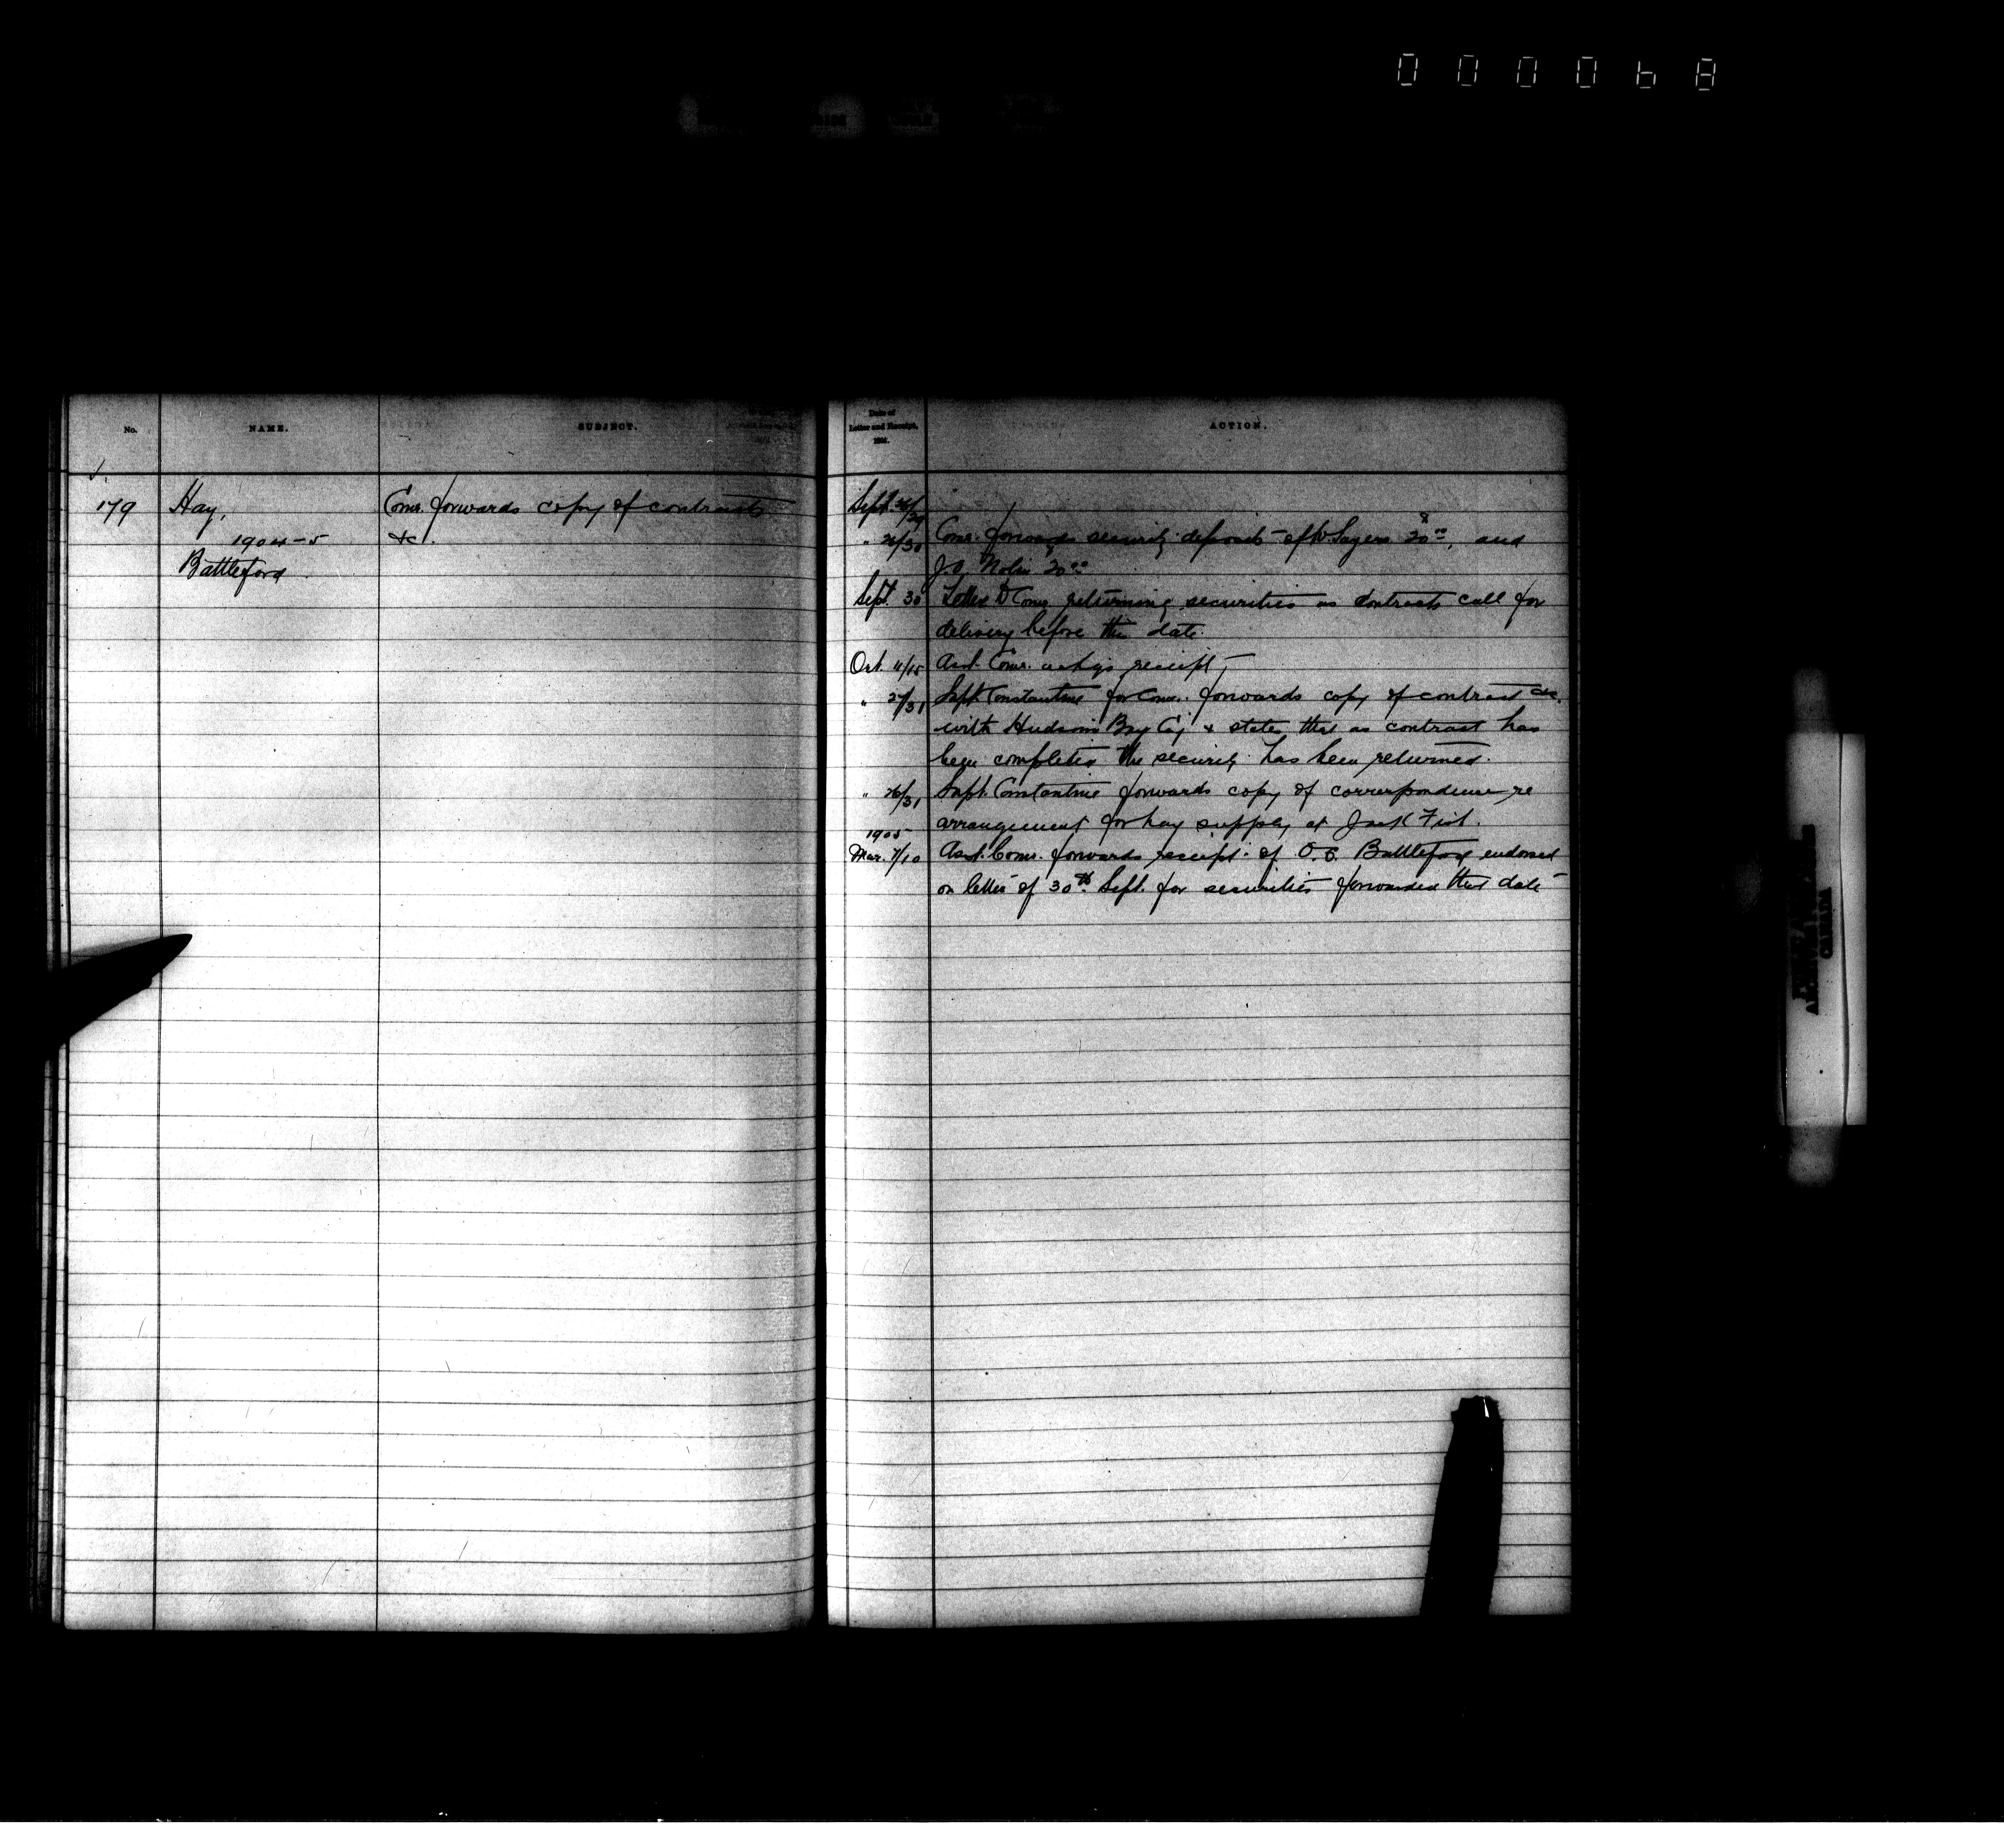 000068
No.
NAME.
SUBJECT.
179
Hay,
1904-5
Battleford
Comr. forwards copy of contracts
&c.
Date of
Letter and Receipt,
ACTION.
Sept. 26/29
" 26/30 Comr. forwards security deposits of Sayers 20 00, and
J.O. Nolin 20 00
Sept. 30 Letter to Comr. returning securities as contracts call for
delivery before this date.
Oct. 11/15 Asst. Comr. ackgs receipt
" 27/31 Supt. Constantine for Comr. forwards copy of contract &c.
with Hudson's Bay Co'y & states that as contract has
been completed the security has been returned.
" 26/31 Supt. Constantine forwards copy of correspondence re
arrangement for hay supply at Jack Fish.
1905
Mar. 7/10 Asst. Comr. forwards receipt of O.C. Battleford endorsed
on letter of 30th Sept. for securities forwarded that date